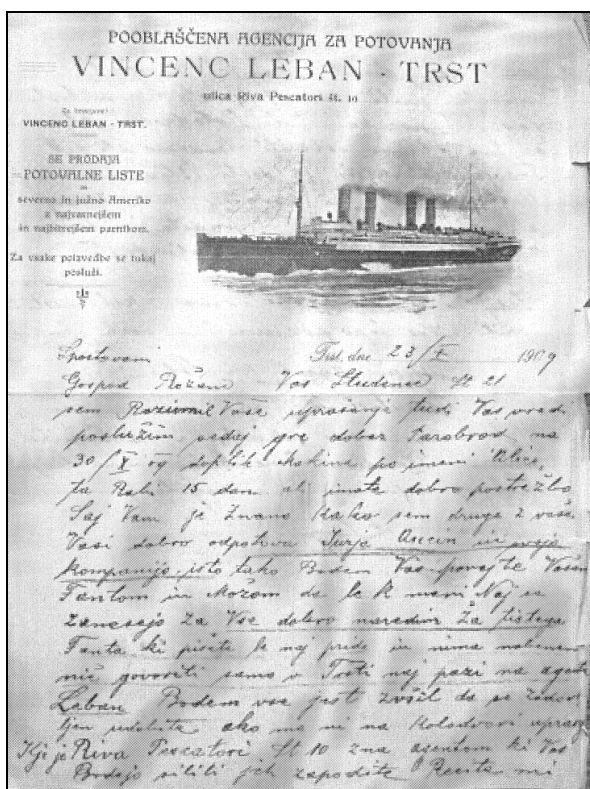 POOBLAŠČENA AGENCIJA ZA POTOVANJA
VINCENC LEBAN - TRST
ulica Riva Pescatori št. 10
Za brzojave:
VINCENC LEBAN - TRST.
SE PRODAJA
POTOVALNE LISTE
za
severno in južno Ameriko
z najvarnejšem
in najhitrejšem parnikom.
Za vsake poizvedbe se tukaj
posluži.
Spostovani Trst, dne 23/X 1909
Gospod Rožanc Vas Studenec St 21
sem Razumil Vaše uprašanje tudi Vas vredi
poslužim sedaj gre dober Parabrod na
30/X 09 doplih Makina po imeni
ta Rabi 15 dan imate dobro postrežbo
Saj Vam je Znano kako sem druge z vaše
Vasi dobro odpotova Jurja Ancin in svojo
kompanijo isto tako Bodem Vas povejte Vašim
Fantom in Možom da k meni Naj se
zanesejo Za Vse dobro naredim Za tistega
Fanta ki pišete naj pride in nima nobenem
nič govoriti samo v Trsti naj pazi na agenta
Leban Bodem vse jest zvšil da se Zadov
ljen ako me ni na Kolodvori upraš
Kje je Riva Pescatori St 10 agentom ki Vas
Bodejo silili jih zapodite Recite mi